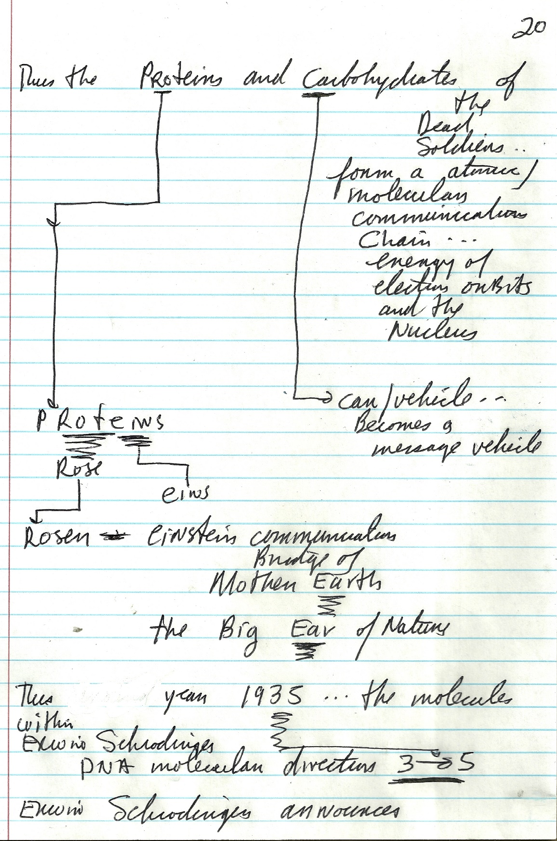 20
Thus the Proteins and Carbohydrates of
the
Dead
Soldiers ..
form a atomic/
molecular
communication
Chain ...
energy of
electron orbits
and the
Nucleus
car/vehicle ...
Becomes a
message vehicle
PRoteins
Rose
eins
Rosen → einstein communication
Bridge of
Mother Earth
the Big Ear of Nature
Thus year 1935 ... the molecules
within
Erwin Schrodingers
DNA molecular directions 3→5
Erwin Schrodingers announces